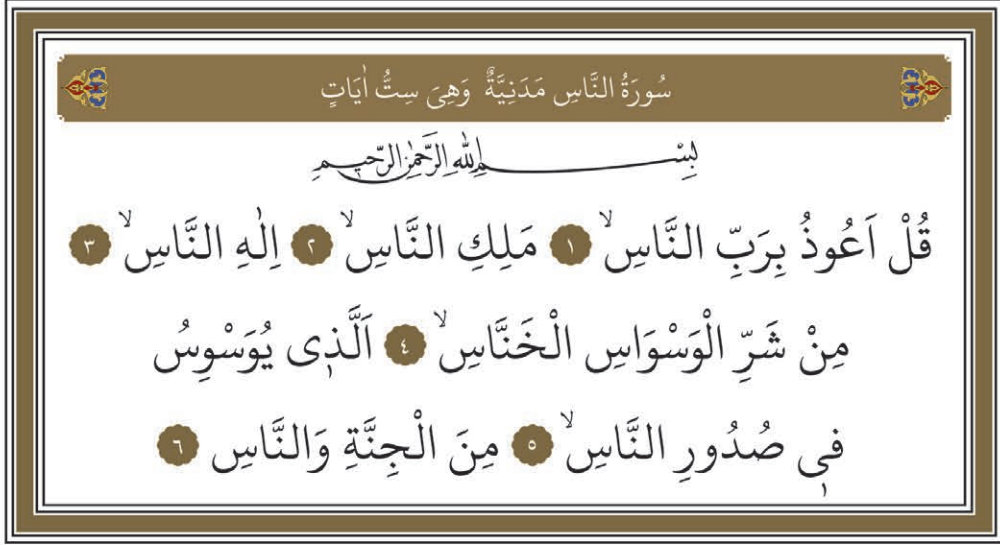 سُورَةُ النَّاسِ مَدَنِيَّةٌ وَهِىَ سِتُّ اٰيَاتٍ
بِسْمِ اللّٰهِ الرَّحْمٰنِ الرَّحِيمِ
قُلْ اَعُوذُ بِرَبِّ النَّاسِۙ ١ مَلِكِ النَّاسِۙ ٢ اِلٰهِ النَّاسِۙ ٣
مِنْ شَرِّ الْوَسْوَاسِ الْخَنَّاسِۙ ٤ اَلَّذٖى يُوَسْوِسُ
فٖى صُدُورِ النَّاسِۙ ٥ مِنَ الْجِنَّةِ وَالنَّاسِ ٦